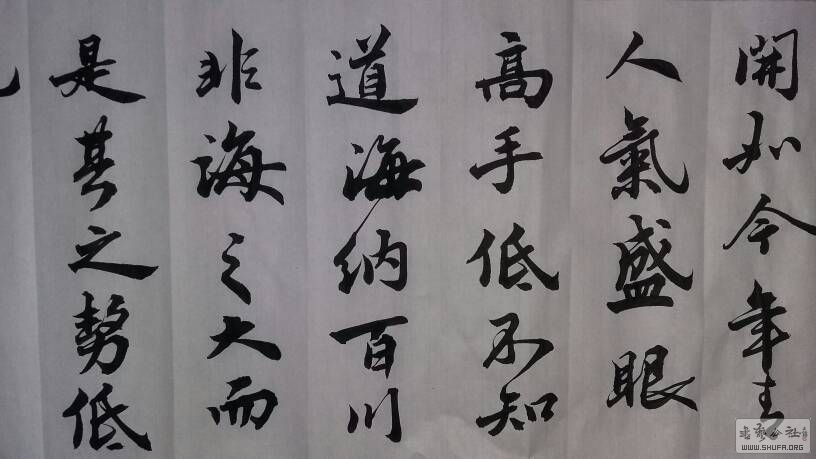 開如今年青
人氣盛眼
高手低不知
道海納百川
非海之大而
是其之勢低
書法公社
WWW.SHUFA.ORG